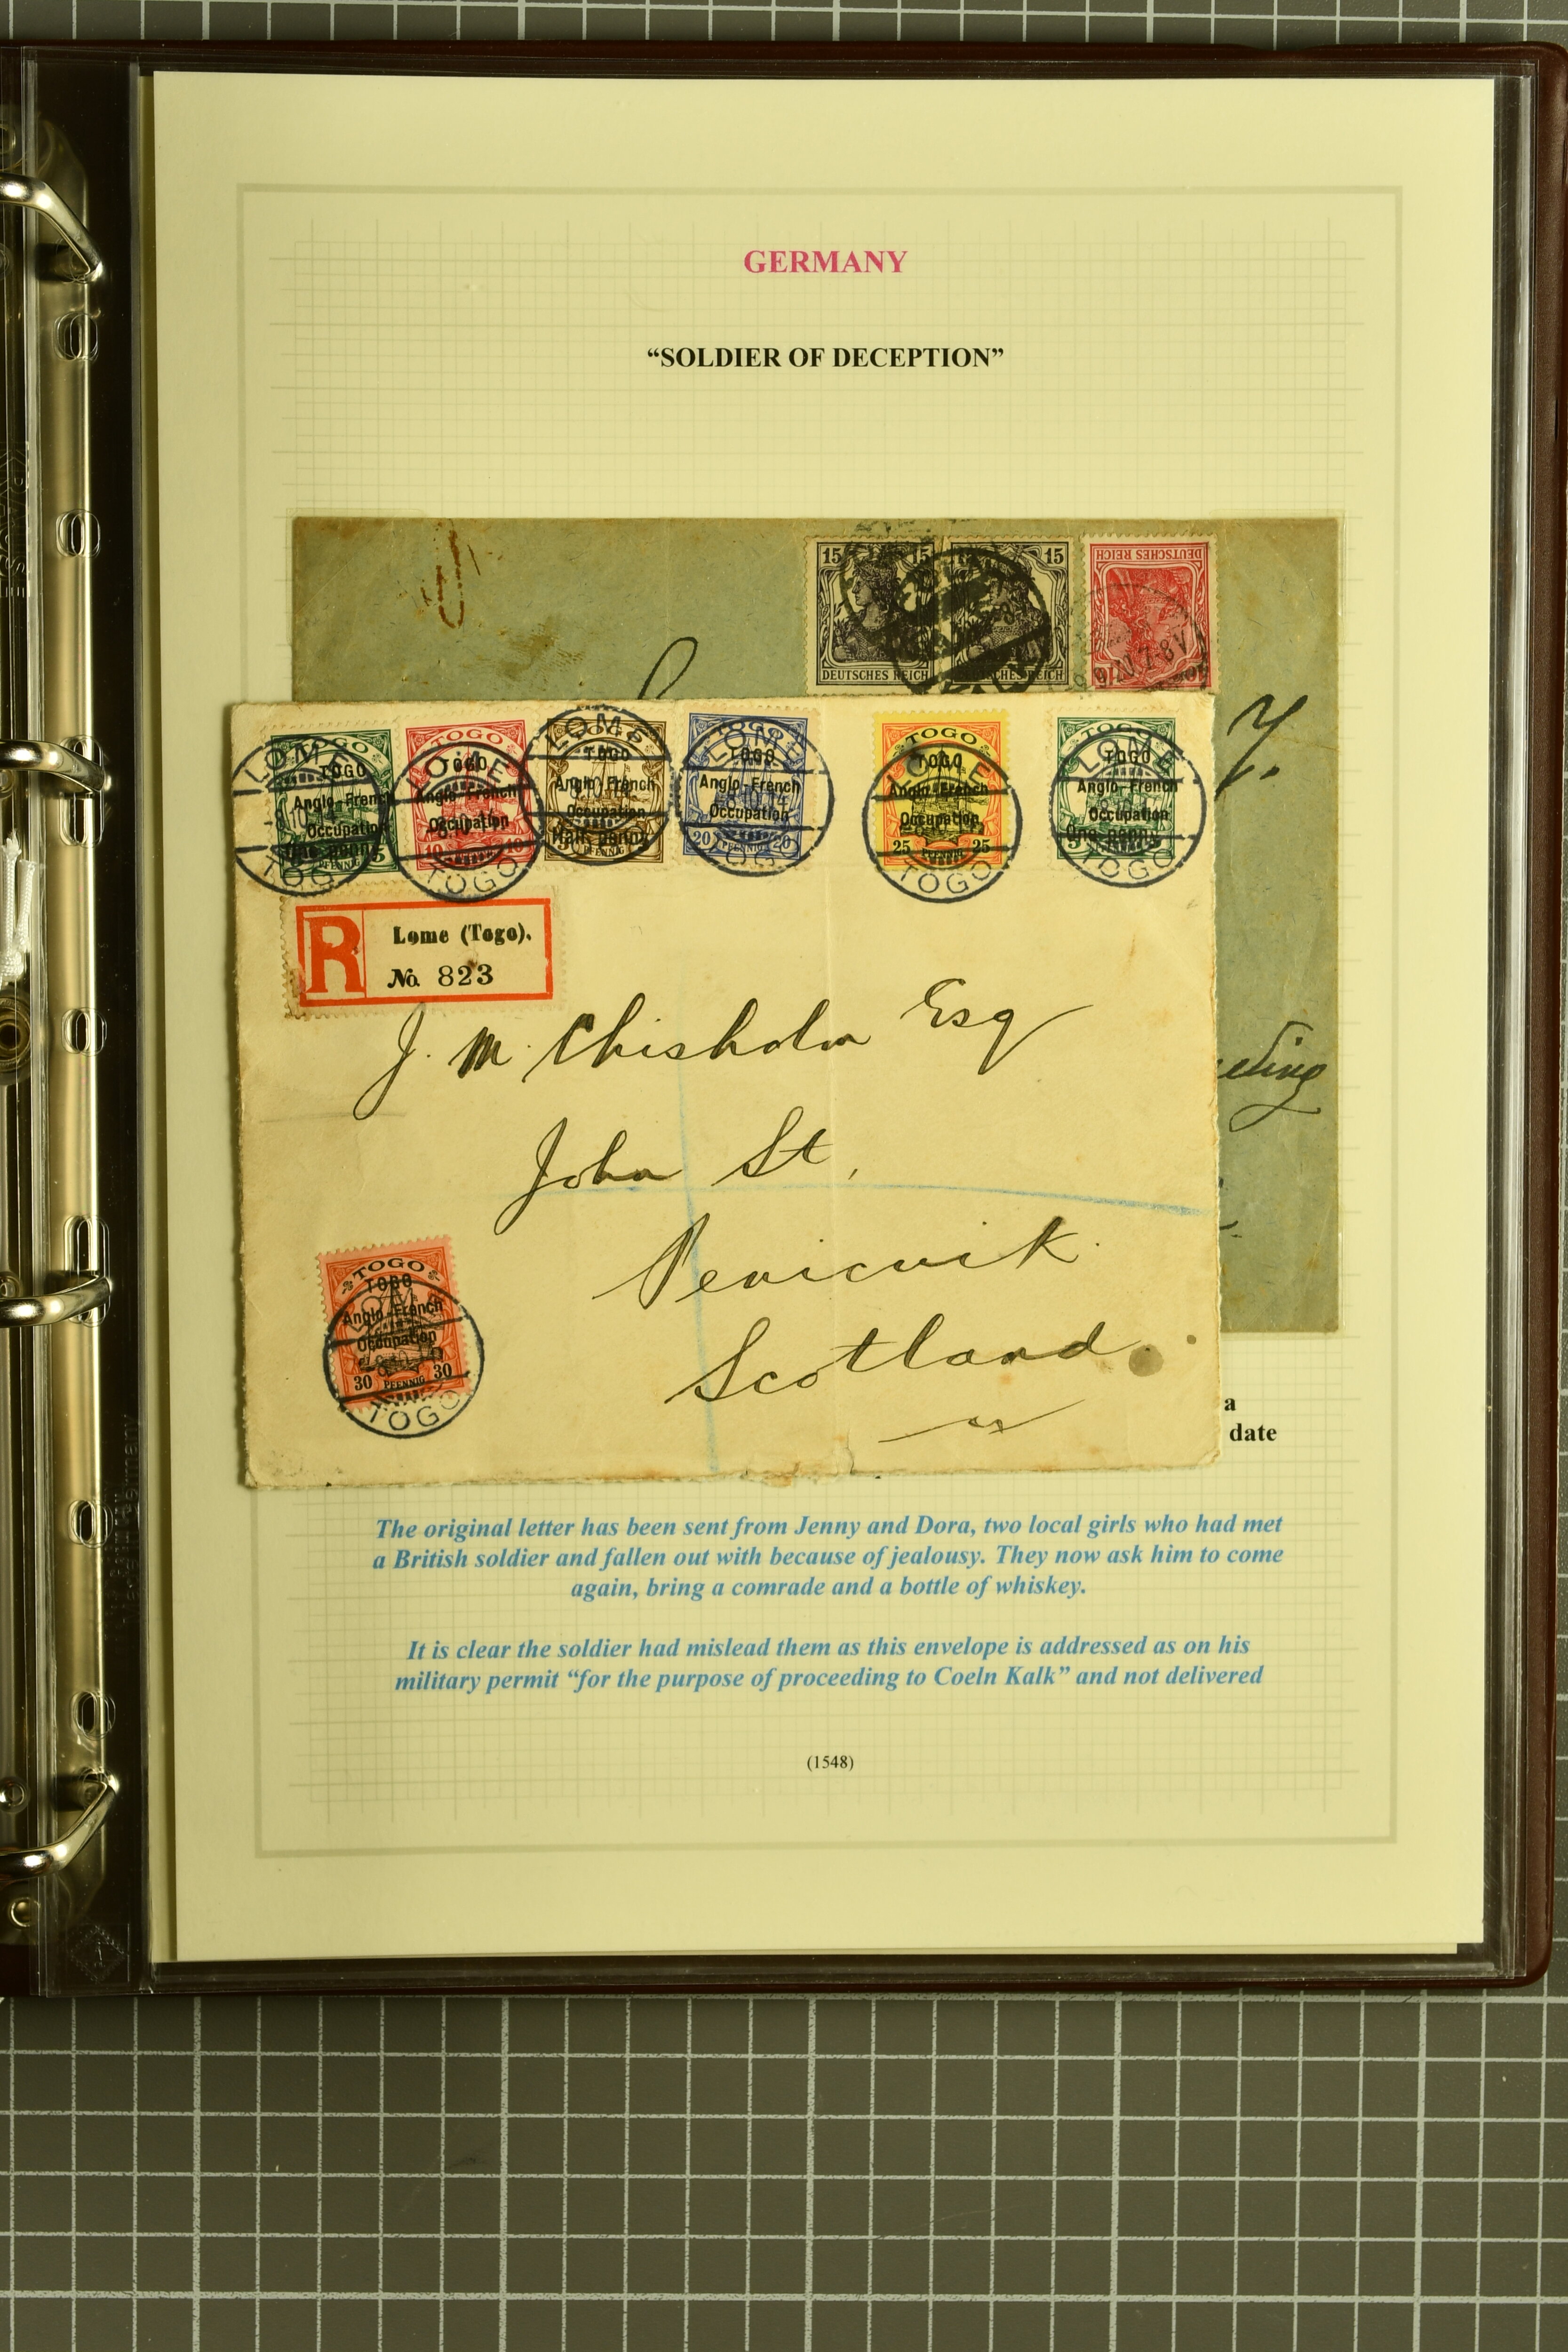 GERMANY
“SOLDIER OF DECEPTION”
15 15
15
DEUTSCHES REICH
DEUTSCHES REICH
DEUTSCHES REICH
8.9.20.7-8V.
y.
LOME
TOGO
TOGO
Anglo-French
Occupation
One penny
PFENNIG 5
-8.10.14
TOGO
LOME
TOGO
TOGO
Anglo-French
Occupation
10 10
TOGO
LOME
TOGO
Anglo-French
Occupation
Half penny
PFENNIG
LOME
TOGO
TOGO
Anglo-French
Occupation
20 PFENNIG 20
TOGO
LOME
TOGO
TOGO
Anglo-French
Occupation
25 PFENNIG 25
TOGO
LOME
TOGO
TOGO
Anglo-French
Occupation
One penny
5
TOGO
R
Lome (Togo).
No. 823
J. M. Chisholm Esq
eding
John St,
Penicuik.
Scotland.
TOGO
TOGO
Anglo-French
Occupation
30 PFENNIG 30
TOGO
a
date
The original letter has been sent from Jenny and Dora, two local girls who had met
a British soldier and fallen out with because of jealousy. They now ask him to come
again, bring a comrade and a bottle of whiskey.
It is clear the soldier had mislead them as this envelope is addressed as on his
military permit “for the purpose of proceeding to Coeln Kalk” and not delivered
(1548)